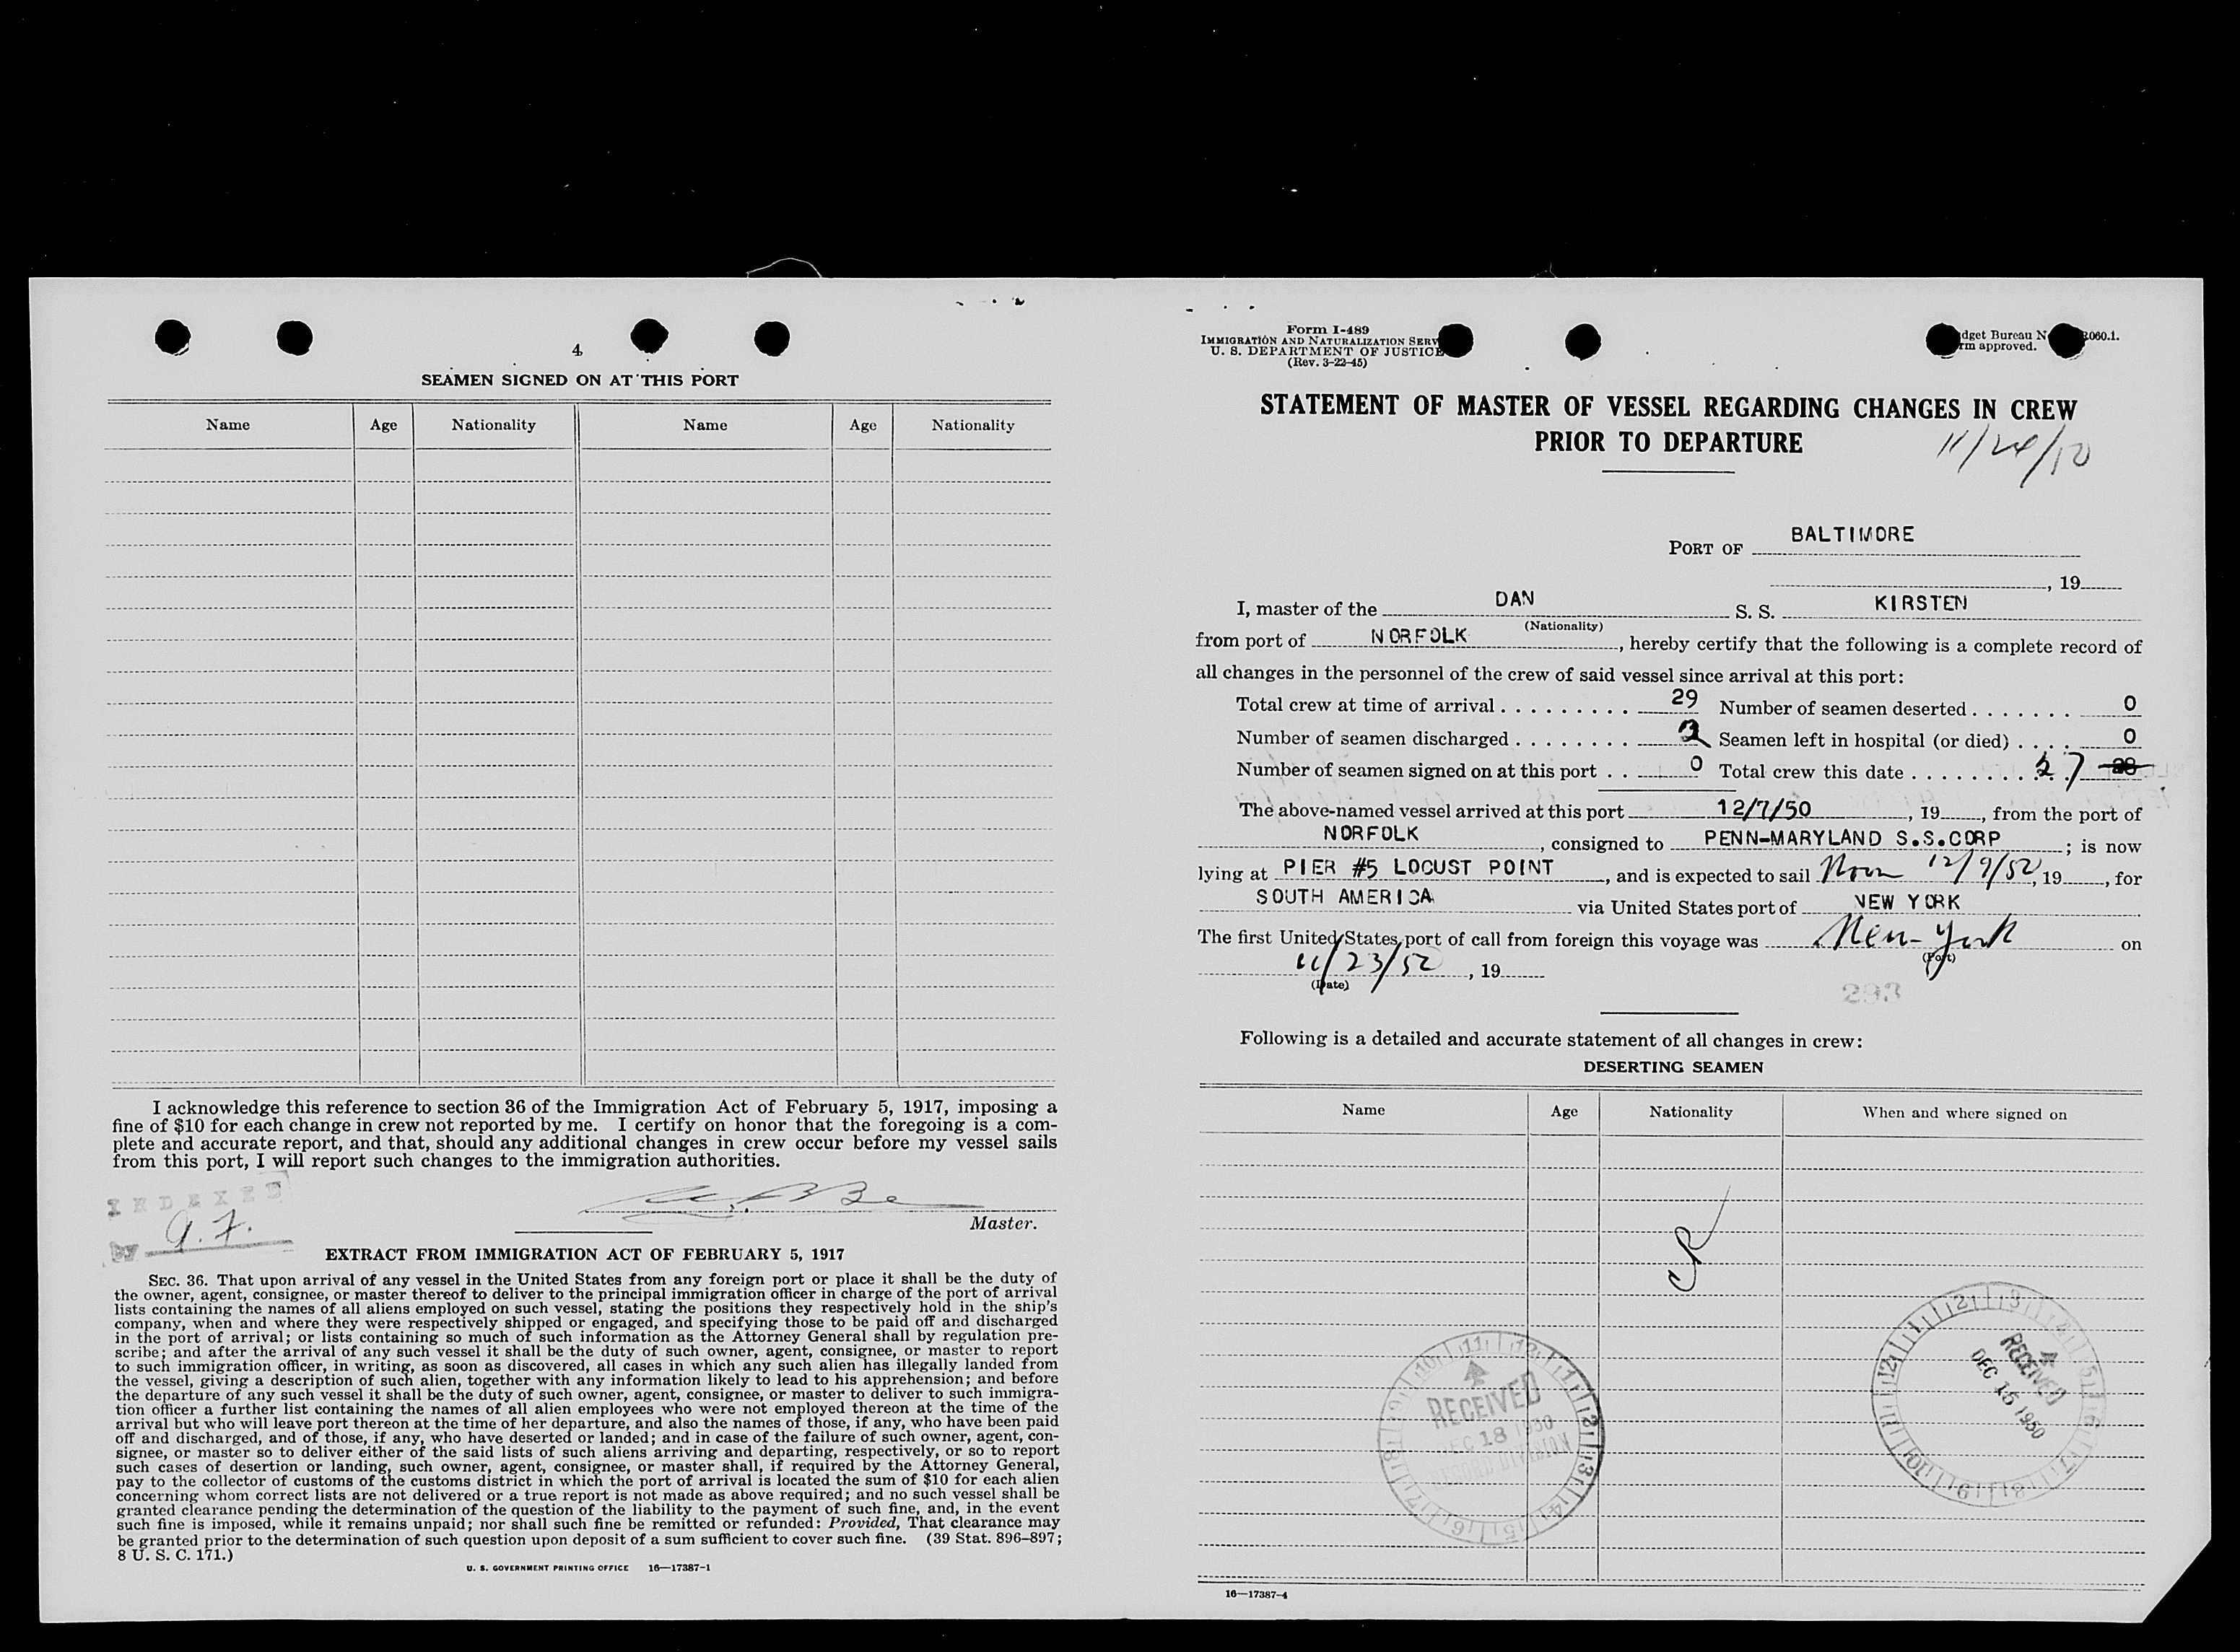 4
SEAMEN SIGNED ON AT THIS PORT
Name Age Nationality Name Age Nationality
I acknowledge this reference to section 36 of the Immigration Act of February 5, 1917, imposing a
fine of $10 for each change in crew not reported by me. I certify on honor that the foregoing is a com-
plete and accurate report, and that, should any additional changes in crew occur before my vessel sails
from this port, I will report such changes to the immigration authorities.
INDEXED
BY
Master.
EXTRACT FROM IMMIGRATION ACT OF FEBRUARY 5, 1917
SEC. 36. That upon arrival of any vessel in the United States from any foreign port or place it shall be the duty of
the owner, agent, consignee, or master thereof to deliver to the principal immigration officer in charge of the port of arrival
lists containing the names of all aliens employed on such vessel, stating the positions they respectively hold in the ship's
company, when and where they were respectively shipped or engaged, and specifying those to be paid off and discharged
in the port of arrival; or lists containing so much of such information as the Attorney General shall by regulation pre-
scribe; and after the arrival of any such vessel it shall be the duty of such owner, agent, consignee, or master to report
to such immigration officer, in writing, as soon as discovered, all cases in which any such alien has illegally landed from
the vessel, giving a description of such alien, together with any information likely to lead to his apprehension; and before
the departure of any such vessel it shall be the duty of such owner, agent, consignee, or master to deliver to such immigra-
tion officer a further list containing the names of all alien employees who were not employed thereon at the time of the
arrival but who will leave port thereon at the time of her departure, and also the names of those, if any, who have been paid
off and discharged, and of those, if any, who have deserted or landed; and in case of the failure of such owner, agent, con-
signee, or master so to deliver either of the said lists of such aliens arriving and departing, respectively, or so to report
such cases of desertion or landing, such owner, agent, consignee, or master shall, if required by the Attorney General,
pay to the collector of customs of the customs district in which the port of arrival is located the sum of $10 for each alien
concerning whom correct lists are not delivered or a true report is not made as above required; and no such vessel shall be
granted clearance pending the determination of the question of the liability to the payment of such fine, and, in the event
such fine is imposed, while it remains unpaid; nor shall such fine be remitted or refunded: Provided, That clearance may
be granted prior to the determination of such question upon deposit of a sum sufficient to cover such fine. (39 Stat. 896-897;
8 U. S. C. 171.)
U. S. GOVERNMENT PRINTING OFFICE 16—17387-1
Form I-489
IMMIGRATION AND NATURALIZATION SERV
U. S. DEPARTMENT OF JUSTICE
(Rev. 3-22-45)
dget Bureau N 060.1.
rm approved.
STATEMENT OF MASTER OF VESSEL REGARDING CHANGES IN CREW
PRIOR TO DEPARTURE
11/24/50
PORT OF BALTIMORE
, 19
I, master of the DAN S. S. KIRSTEN
(Nationality)
from port of NORFOLK, hereby certify that the following is a complete record of
all changes in the personnel of the crew of said vessel since arrival at this port:
Total crew at time of arrival . . . . . . . . . 29 Number of seamen deserted . . . . . . . 0
Number of seamen discharged . . . . . . . . 2 Seamen left in hospital (or died) . . . . 0
Number of seamen signed on at this port . . 0 Total crew this date . . . . . . . . 27 28
The above-named vessel arrived at this port 12/7/50, 19, from the port of
NORFOLK, consigned to PENN-MARYLAND S.S.CORP; is now
lying at PIER #5 LOCUST POINT, and is expected to sail Noon 12/9/50, 19, for
SOUTH AMERICA via United States port of NEW YORK
The first United States port of call from foreign this voyage was New-York on
(Port)
11/23/50, 19
(Date)
293
Following is a detailed and accurate statement of all changes in crew:
DESERTING SEAMEN
Name Age Nationality When and where signed on
RECEIVED
DEC 18 1950
RECORD DIVISION
RECEIVED
DEC 15 1950
16—17387-4